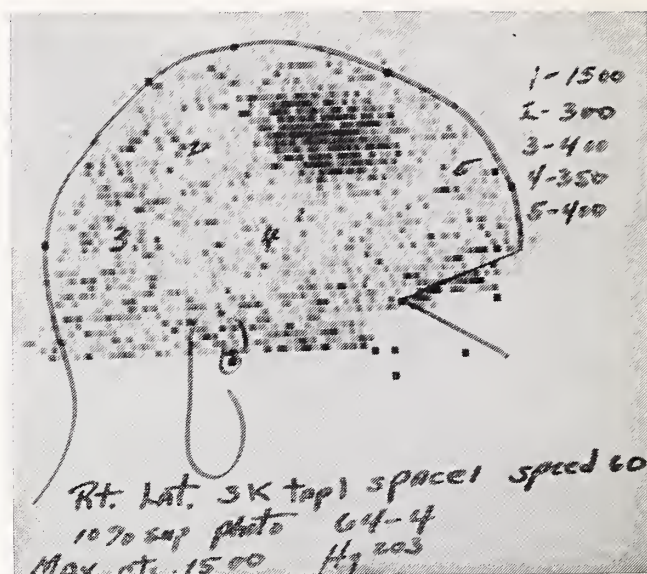 1-1500
2-300
3-400
4-350
5-400
2
5
3
4
Rt. Lat. 3K tap1 spacer speed 60
10% sup photo 64-4
Max cts. 1500 Hg 203